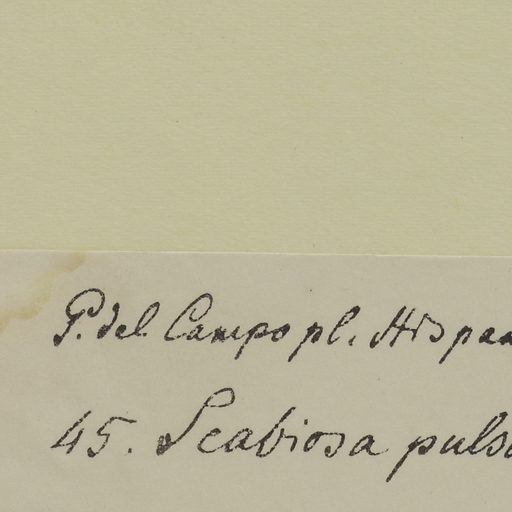 P. del Campo pl. Hispan
45. Scabiosa pulsa